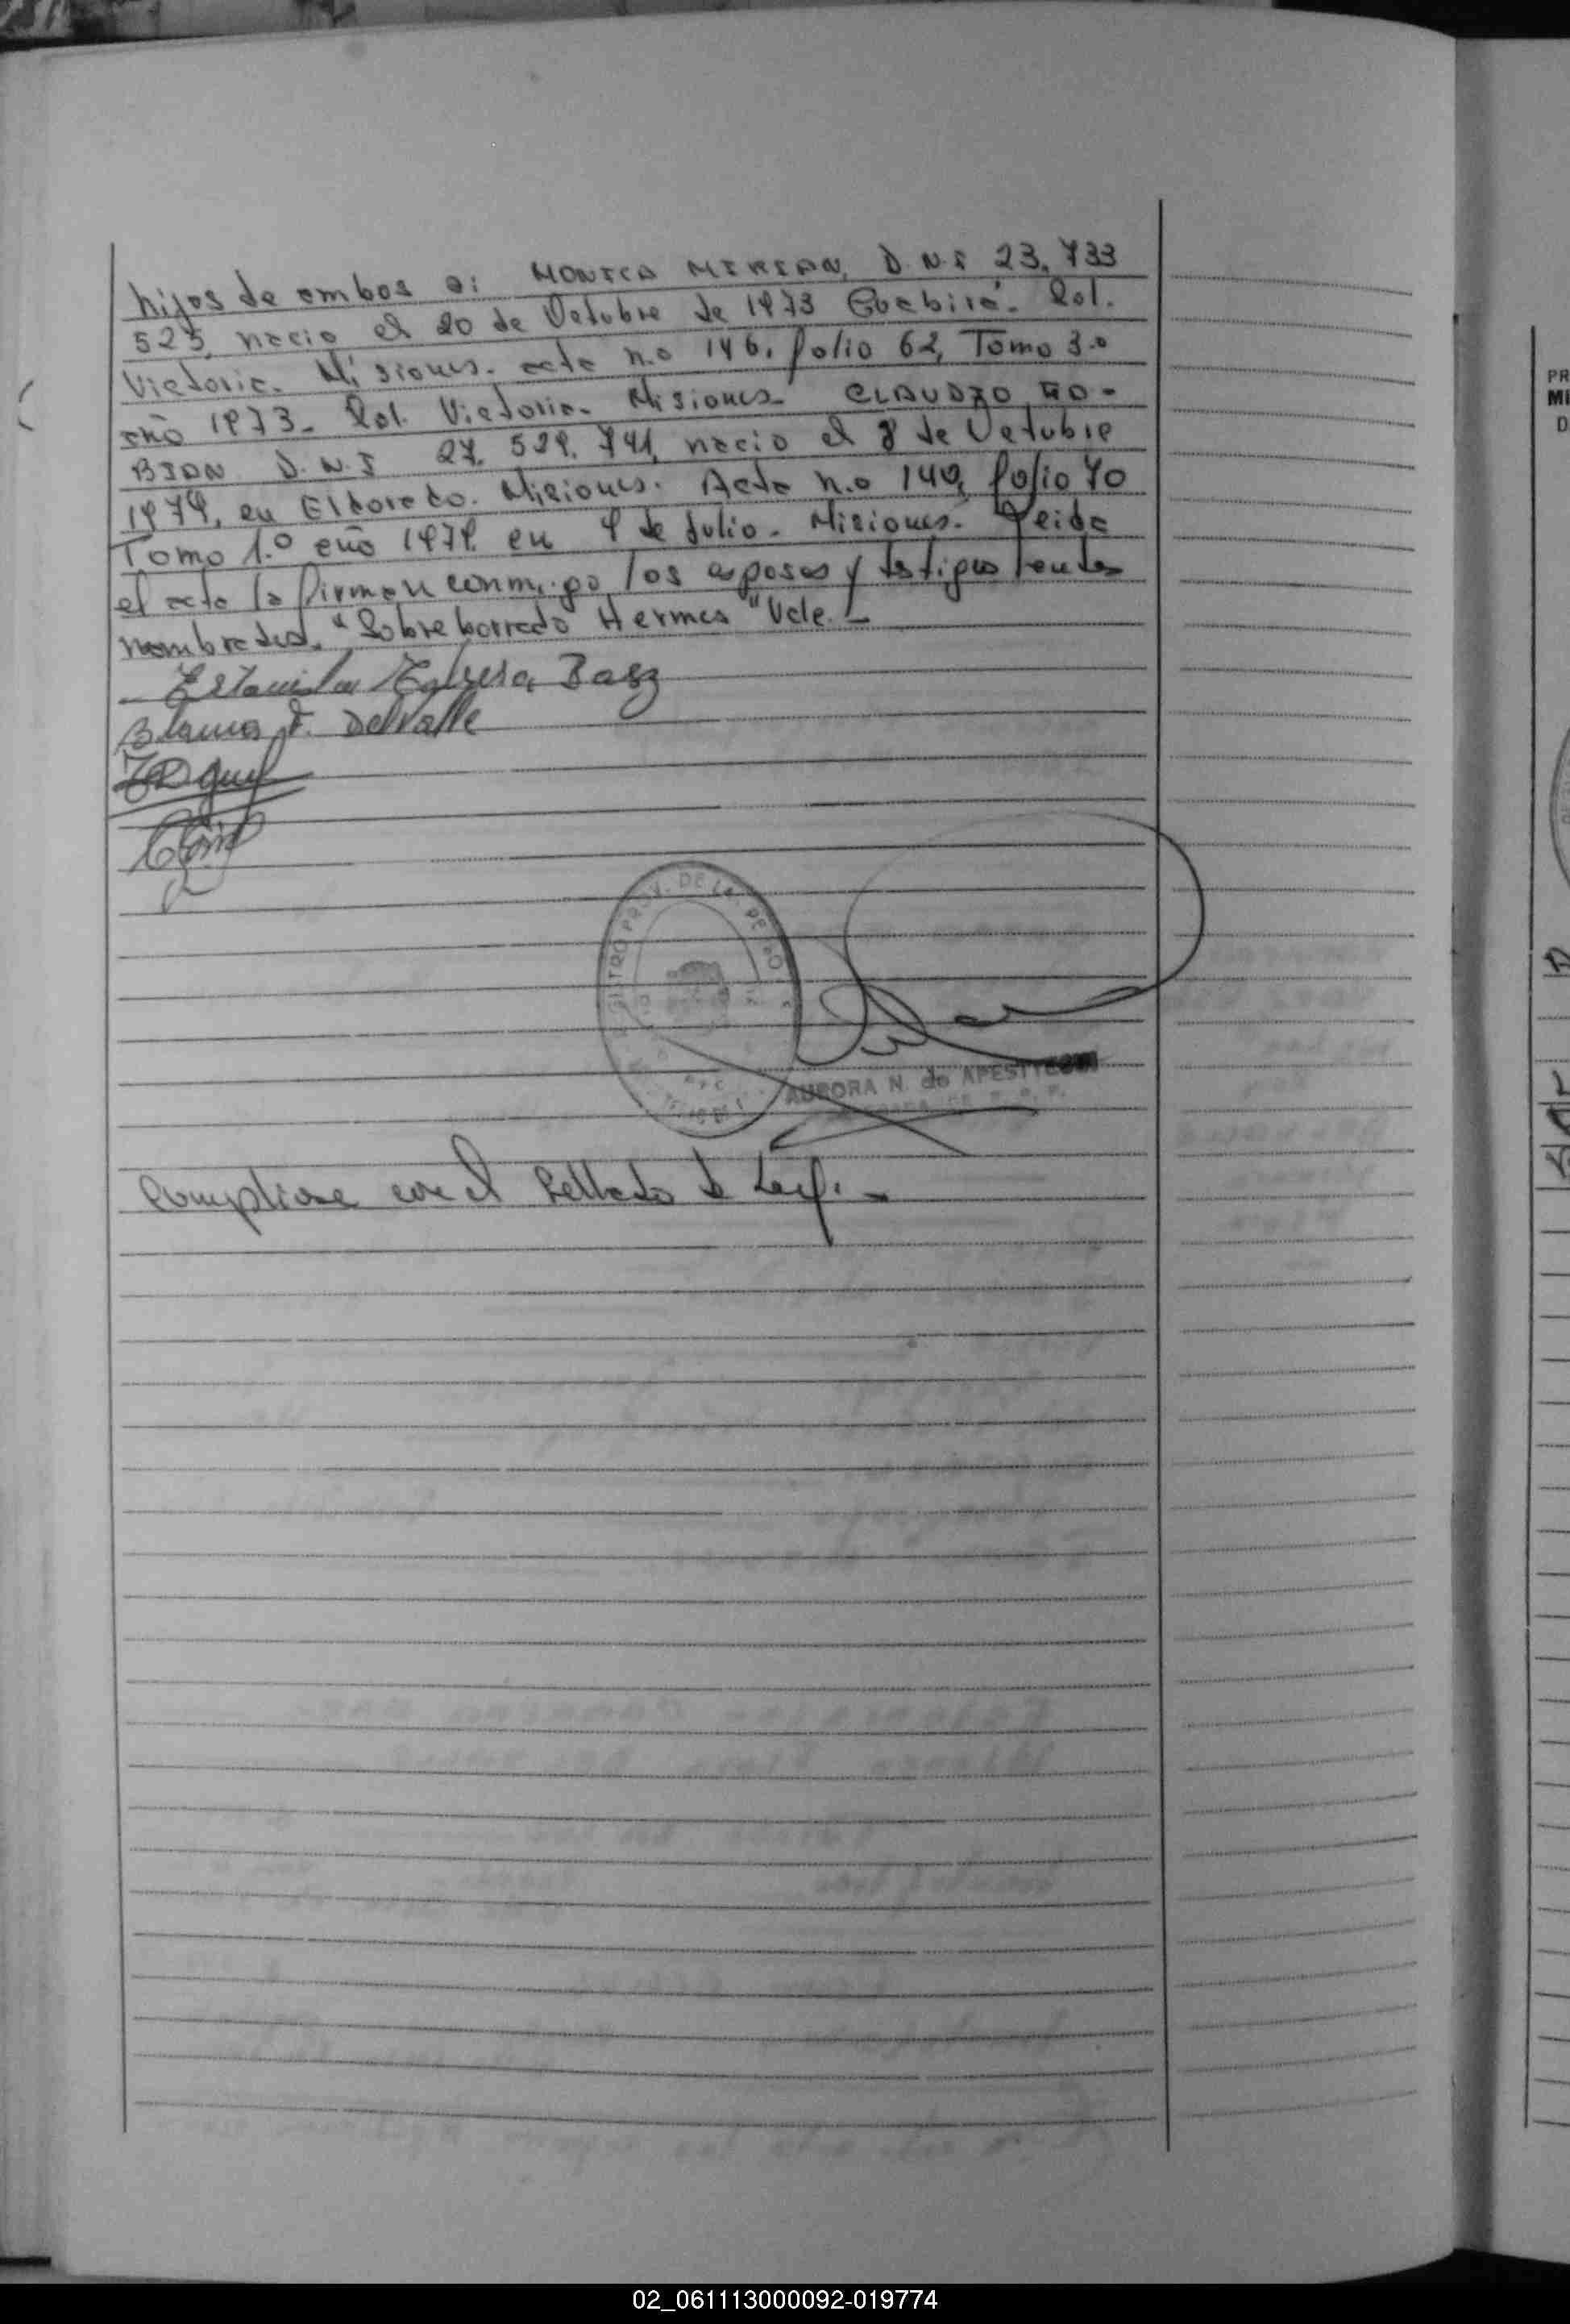 hijos de ambos a: MONICA MIRIAN, D.N.I 23.733
525, nacio el 20 de Octubre de 1973 Guabirá. Col.
Victoria. Misiones. acta n.o 146, folio 62, Tomo 3.o
año 1973. Col. Victoria. Misiones. CLAUDIO FA-
BIAN D.N.I 27.529.741, nacio el 8 de Octubre
1979, en Eldorado. Misiones. Acta n.o 140, folio 70
Tomo 1.o año 1979. en 9 de Julio. Misiones. Leida
el acta la firman conmigo los esposos y testigos
nombrados. "Sobreborrado Hermes" Vale.-
Baez
Blanca F. DelValle
REGISTRO PROV. DE LAS PERSONAS
AURORA N. de APESTEGUI
Cumpliose con el Sellado de Ley.-
PR
MI
D
02_061113000092-019774